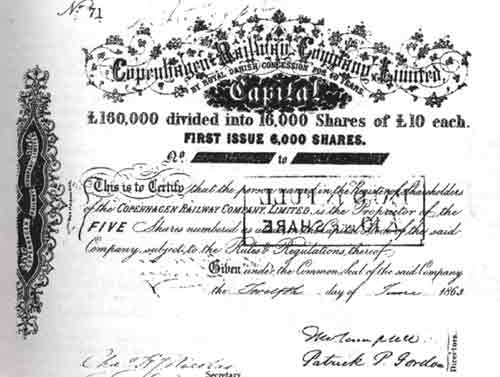 No. 71
Copenhagen Railway Company Limited.
BY ROYAL DANISH CONCESSION FOR 40 YEARS.
Capital
£160,000 divided into 16,000 Shares of £10 each.
FIRST ISSUE 6,000 SHARES.
No. to
This is to Certify that the person named in the Register of Shareholders
of the COPENHAGEN RAILWAY COMPANY, LIMITED, is the Proprietor of the
FIVE Shares numbered as of the said
Company, subject to the Rules & Regulations thereof.
Given under the Common Seal of the said Company
the Twelfth day of June 1863
Patrick P. Gordon
Directors.
Secretary